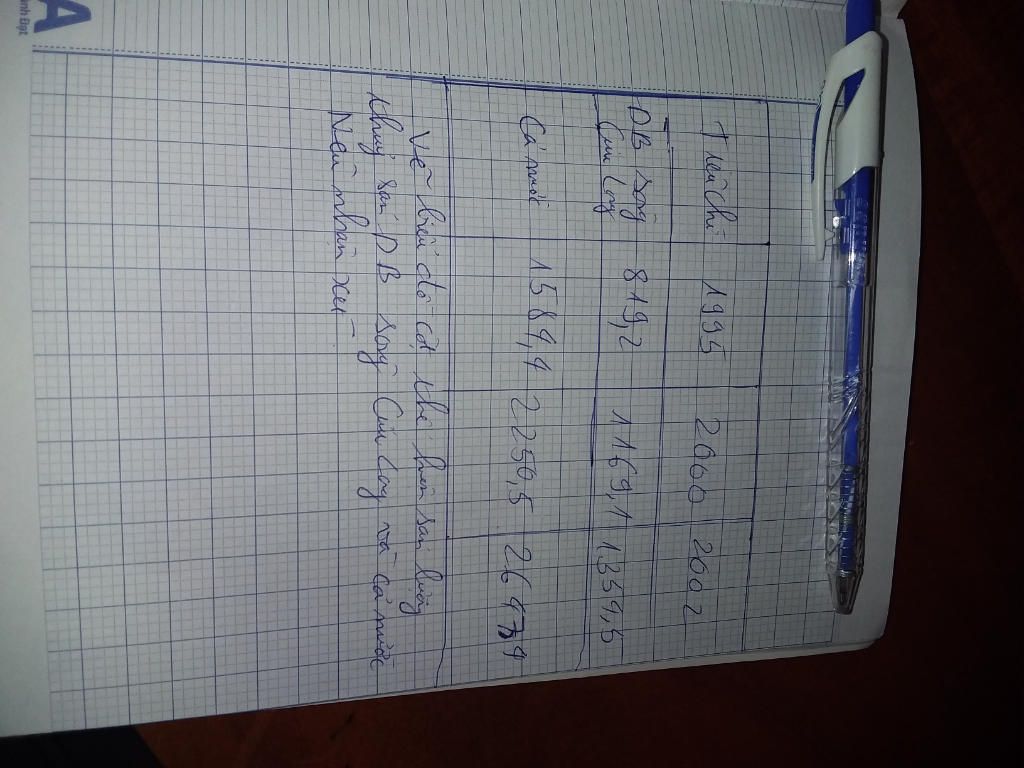 T nêu chí 1995 2000 2002
ĐB sông Cửu Long 819,2 1169,1 1354,5
Cả nước 1584,4 2250,5 2647,4
Vẽ biểu đồ cột thể hiện sản lượng
thuỷ sản ĐB sông Cửu Long và cả nước
Nêu nhận xét
A
ành Đạt